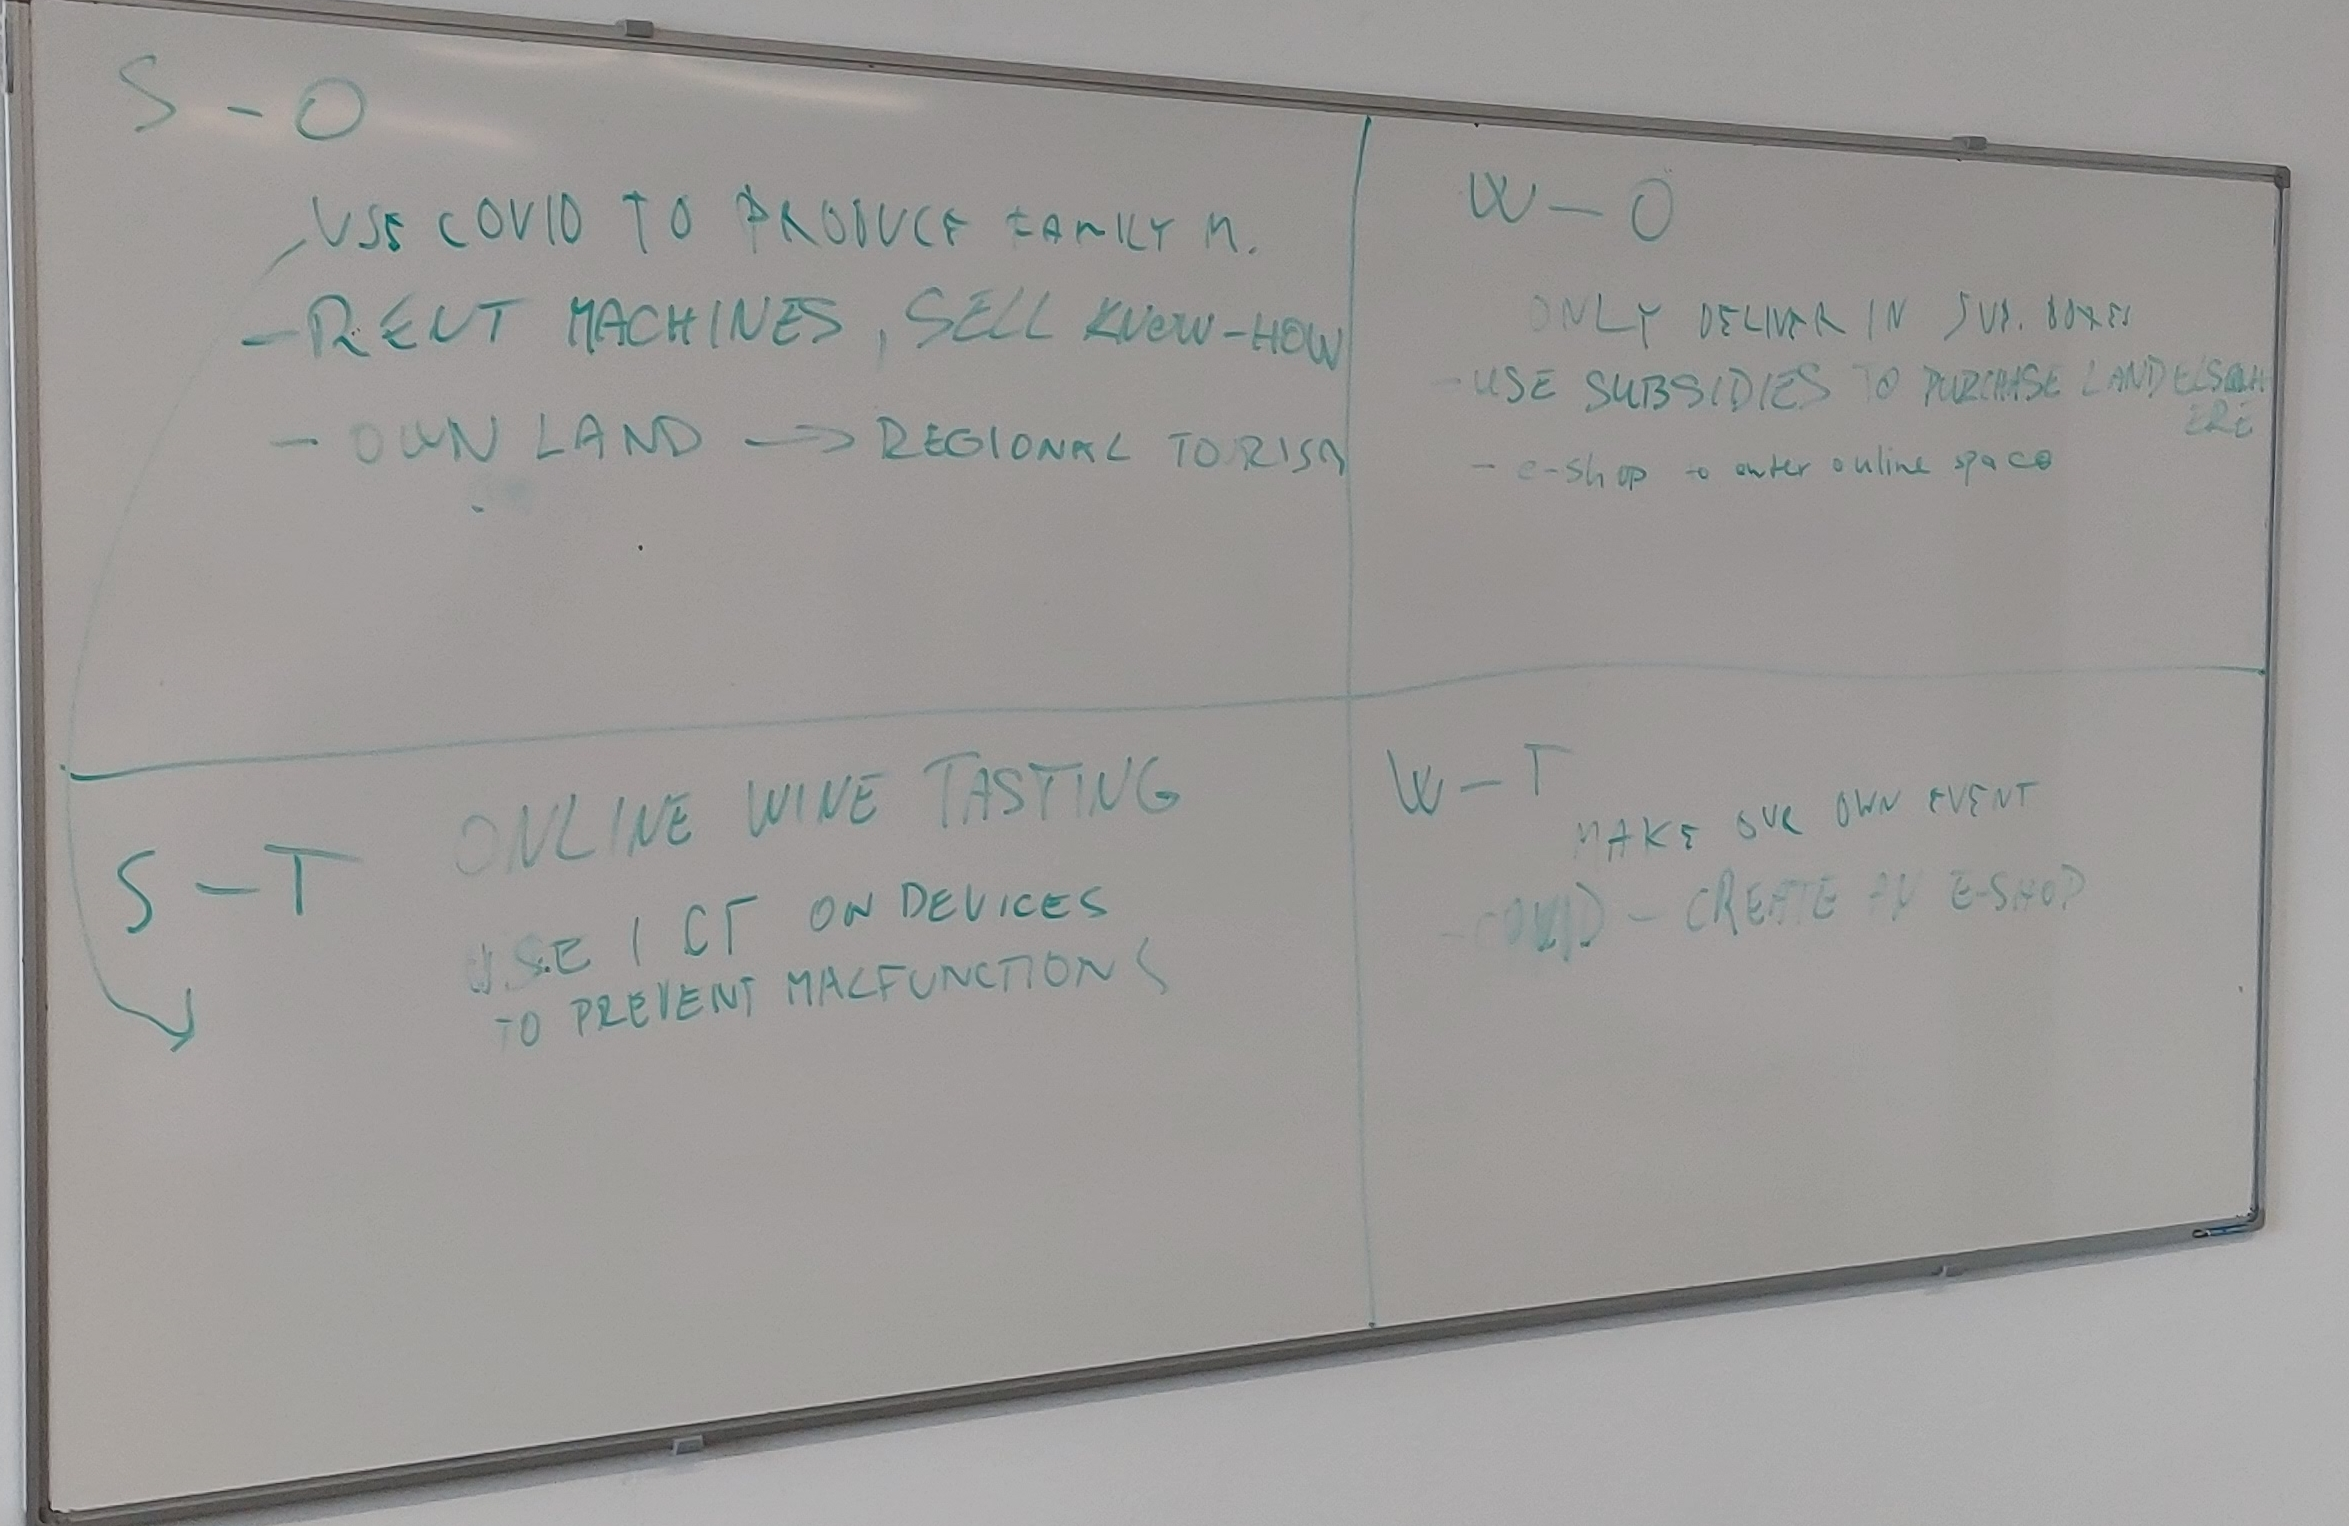 S - O
USE COVID TO PRODUCE FAMILY M.
- RENT MACHINES, SELL KNOW-HOW
- OWN LAND → REGIONAL TORISM
W - O
ONLY DELIVER IN SUP. BOXES
- USE SUBSIDIES TO PURCHASE LAND ELSEWH
ERE
- e-shop to enter online space
S - T
ONLINE WINE TASTING
USE ICT ON DEVICES
TO PREVENT MALFUNCTIONS
W - T
MAKE OUR OWN EVENT
- COVID - CREATE AN E-SHOP